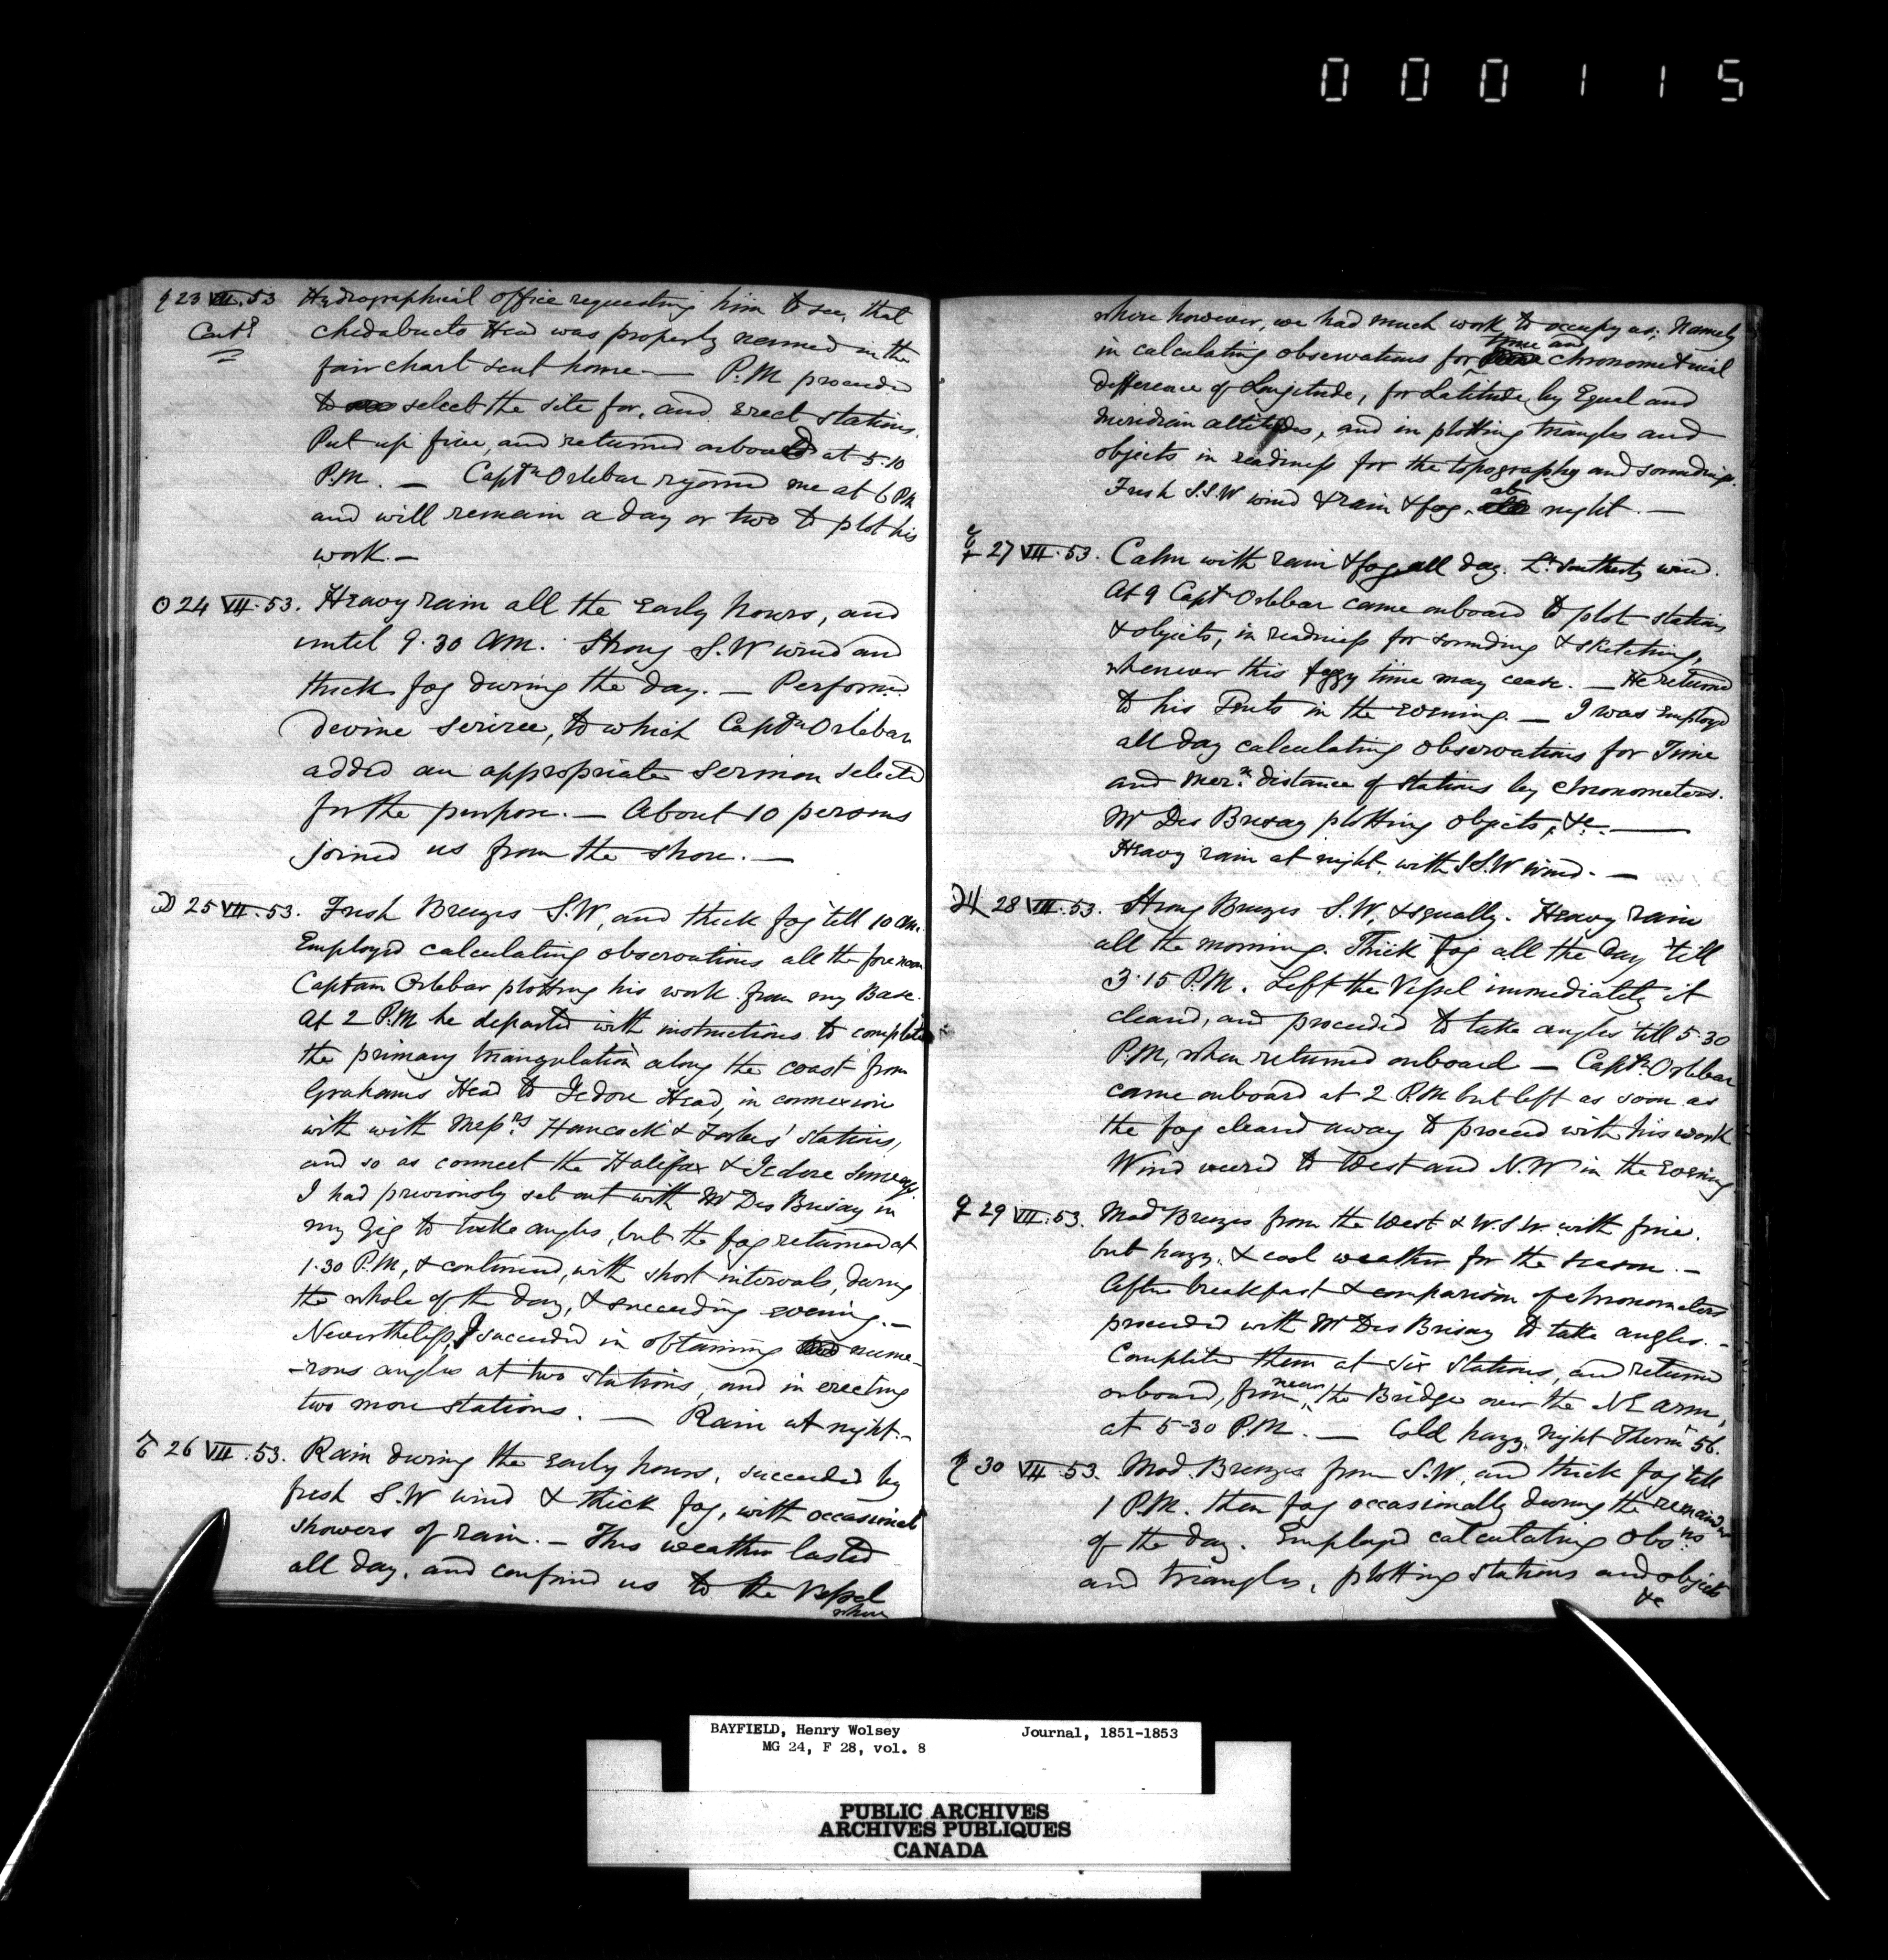 000115
23 VII. 53 Hydrographical office requesting him to see, that
Contd chedabucto Head was properly named in the
fair chart sent home — P.M proceeded
to select the site for, and erect stations.
Put up five, and returned onboard at 5.10
P.M. — Captn Orlebar rejoined me at 6 PM
and will remain a day or two to plot his
work. —
☉ 24 VII. 53. Heavy rain all the early hours, and
until 9.30 AM. Strong S.W wind and
thick fog during the day. — Performed
devine servicee, to which Captn Orlebar
added an appropriate sermon selected
for the purpose. — About 10 persons
joined us from the shore. —
☽ 25 VII. 53. Fresh Breezes S.W, and thick fog till 10 AM.
Employed calculating observations all the forenoon
Captain Orlebar plotting his work from my Base.
At 2 P.M he departed with instructions to complete
the primary triangulation along the coast from
Grahams Head to Jedore Head, in connexion
with with Messrs Hancock & Forbes' stations,
and so as connect the Halifax & Jedore Surveys.
I had previously set out with Mr Des Brisay in
my Gig to take angles, but the fog returned at
1.30 P.M, & continued, with short intervals, during
the whole of the day, & succeeding evening. —
Nevertheless, I succeeded in obtaining nume-
-rous angles at two stations, and in erecting
two more stations. — Rain at night. -
26 VII. 53. Rain during the early hours, succeeded by
fresh S.W wind & thick fog, with occasional
showers of rain. — This weather lasted
all day, and confined us to the Vessel
where
where however, we had much work to occupy us; Namely
time and
in calculating observations for chronometrical
difference of Longitude, for Latitude by Equal and
Meridian altitudes, and in plotting triangles and
objects in readiness for the topography and soundings.
Fresh S.S.W wind & rain & fog, at night. —
☿ 27 VII. 53. Calm with rain & fog all day. Lt Southerly wind.
At 9 Captn Orlebar came onboard to plot stations
& objects, in readiness for sounding & sketching,
whenever this foggy time may cease. — He returned
to his Tents in the evening. — I was employed
all day calculating observations for Time
and Mern distance of stations by chronometers.
Mr Des Brisay plotting objects, &c. —
Heavy rain at night, with S.S.W wind. —
♃ 28 VII. 53. Strong Breezes S.W, & squally. Heavy rain
all the morning. Thick fog all the day 'till
3.15 P.M. Left the Vessel immediately it
cleared, and proceeded to take angles 'till 5.30
P.M, when returned onboard — Captn Orlebar
came onboard at 2 P.M but left as soon as
the fog cleared away to proceed with his work
Wind veered to West and N.W in the evening
♀ 29 VII. 53. Mod Breezes from the West & W.S.W. with fine.
but hazy, & cool weather for the season. —
After breakfast & comparison of chronometers
proceeded with Mr Des Brisay to take angles. -
Completed them at six stations, and returned
onboard, from near the Bridge over the NE arm,
at 5-30 P.M. — Cold hazy night Therm 56.
30 VII. 53. Mod. Breezes from S.W, and thick fog till
1 P.M. then fog occasionally during the remainder
of the day. Employed calculating Obsns
and triangles, plotting stations and objects
&c
BAYFIELD, Henry Wolsey Journal, 1851-1853
MG 24, F 28, vol. 8
PUBLIC ARCHIVES
ARCHIVES PUBLIQUES
CANADA